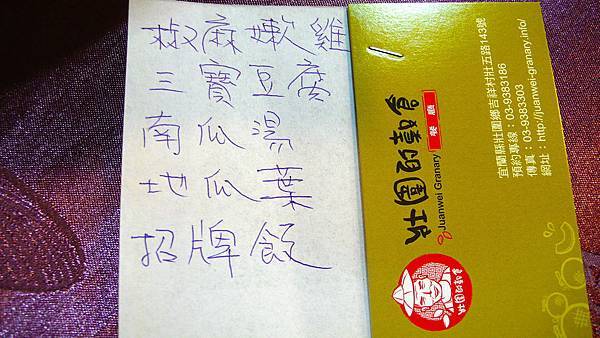 椒麻嫩雞
三寶豆腐
南瓜湯
地瓜葉
招牌飯
餐廳
Juanwei Granary
宜蘭縣壯圍鄉吉祥村壯五路143號
預約專線：03-9383186
傳真：03-9383303
網址：http://juanwei-granary.info/